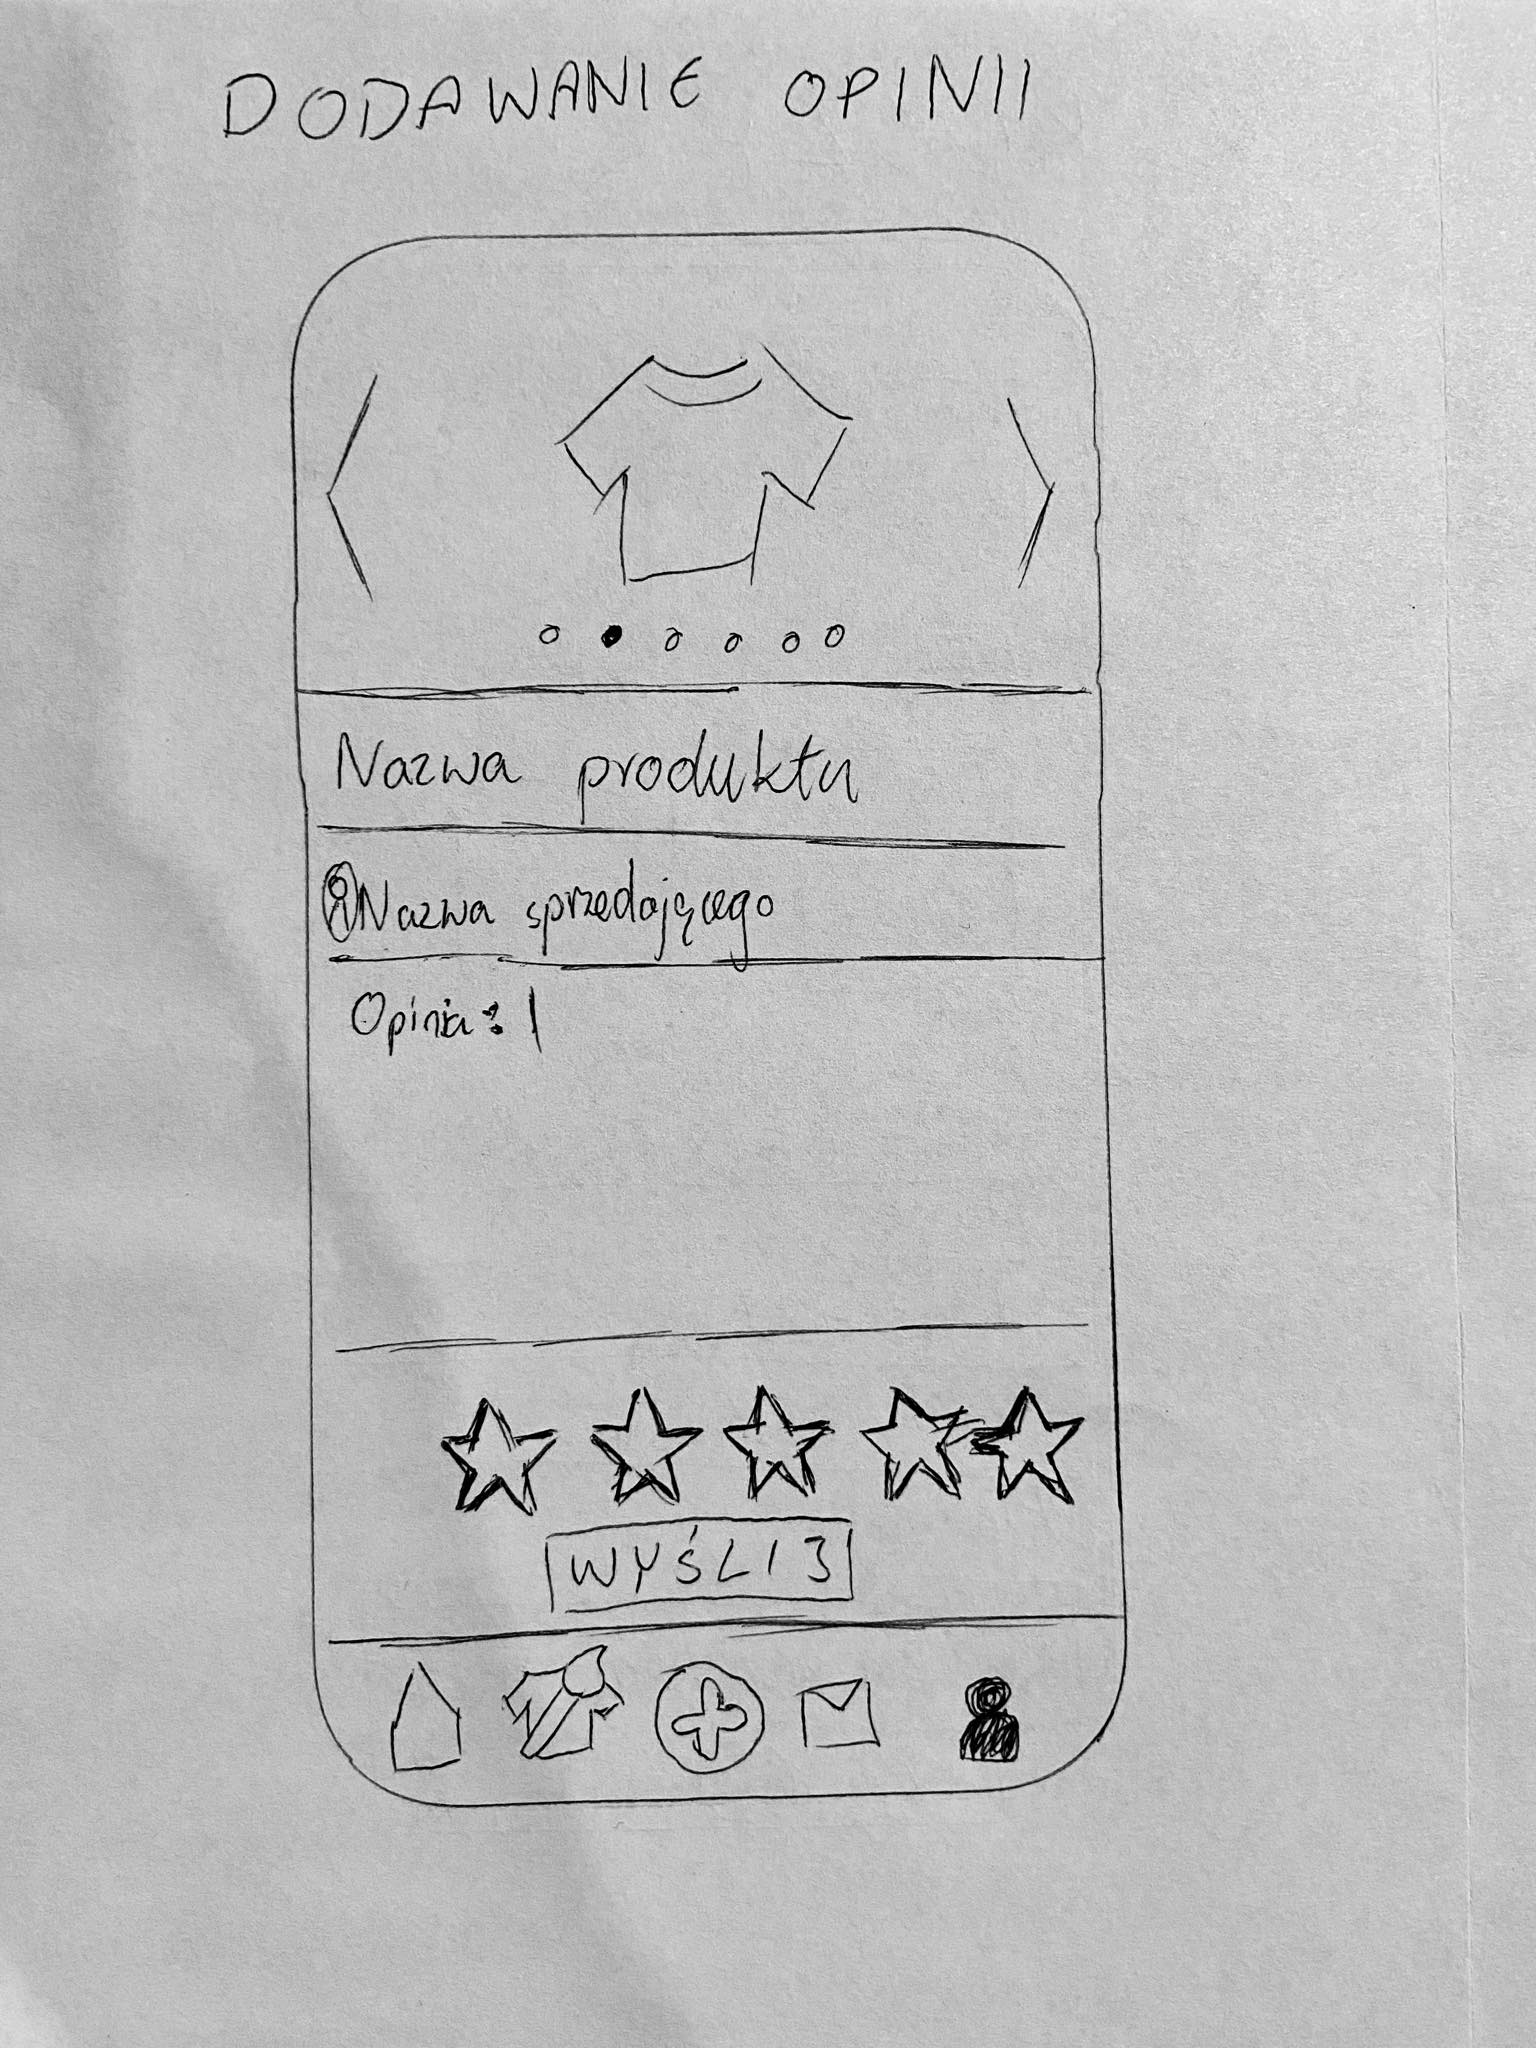 DODAWANIE OPINII
Nazwa produktu
Nazwa sprzedającego
Opinia:
WYŚLIJ